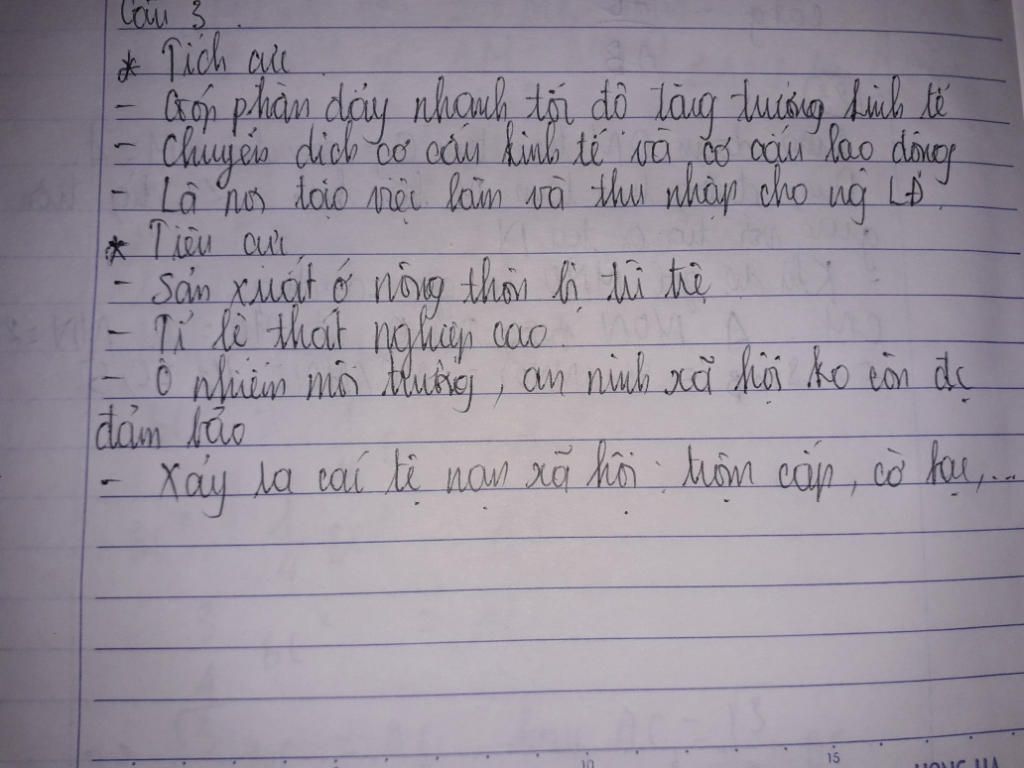 Câu 3.
* Tích cực
- Góp phần đẩy nhanh tốc độ tăng trưởng kinh tế
- Chuyển dịch cơ cấu kinh tế và cơ cấu lao động
- Là nơi tạo việc làm và thu nhập cho ng LĐ.
* Tiêu cực
- Sản xuất ở nông thôn bị trì trệ
- Tỉ lệ thất nghiệp cao
- Ô nhiễm môi trường, an ninh xã hội ko còn đc
đảm bảo
- Xảy ra các tệ nạn xã hội: trộm cắp, cờ bạc,...
10 15
HONG HA